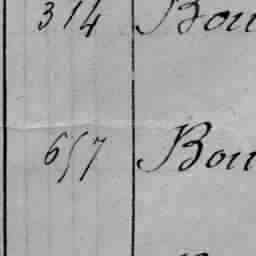 314 Bou
657 Bou